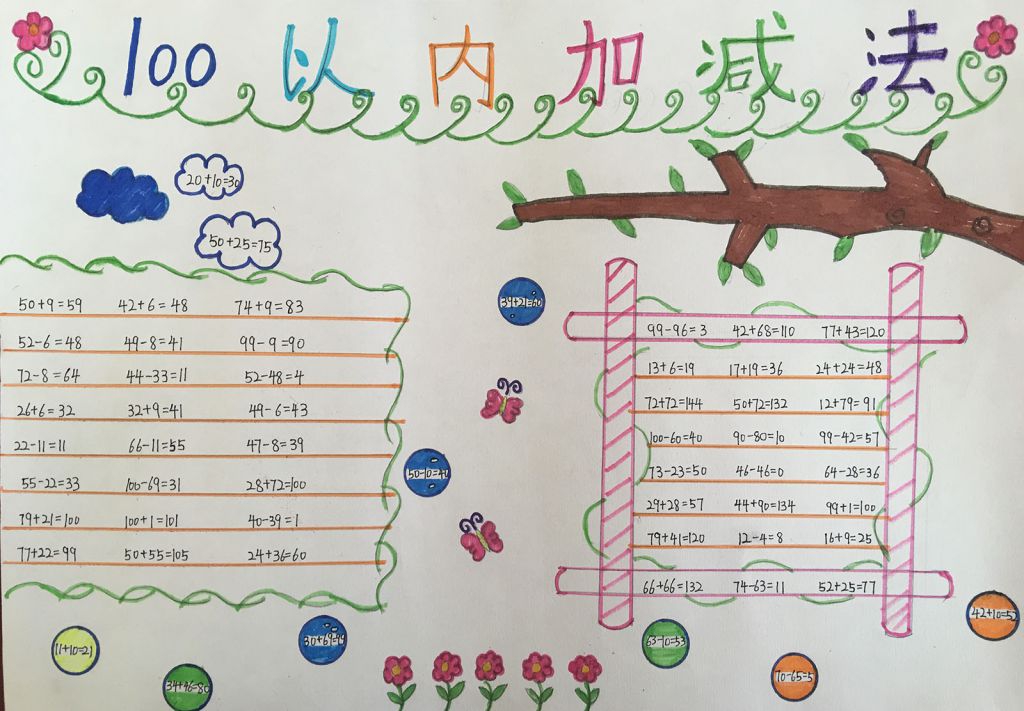 100以内加减法
20+10=30
50+25=75
50+9=59 42+6=48 74+9=83
52-6=48 49-8=41 99-9=90
72-8=64 44-33=11 52-48=4
26+6=32 32+9=41 49-6=43
22-11=11 66-11=55 47-8=39
55-22=33 100-69=31 28+72=100
79+21=100 100+1=101 40-39=1
77+22=99 50+55=105 24+36=60
34+21=60
50-10=40
99-96=3 42+68=110 77+43=120
13+6=19 17+19=36 24+24=48
72+72=144 50+72=132 12+79=91
100-60=40 90-80=10 99-42=57
73-23=50 46-46=0 64-28=36
29+28=57 44+90=134 99+1=100
79+41=120 12-4=8 16+9=25
66+66=132 74-63=11 52+25=77
11+10=21
34+46=80
30+69=99
63-10=53
70-65=5
42+10=52